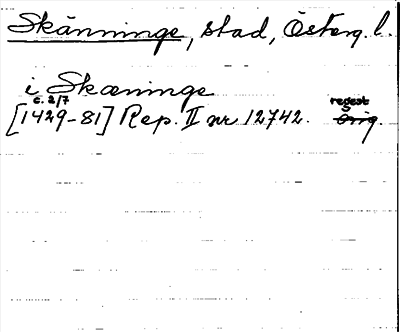 Skänninge, stad, Österg. l.
i Skæninge
c. 2/7
[1429-81] Rep. II nr 12742. regest
Orig.